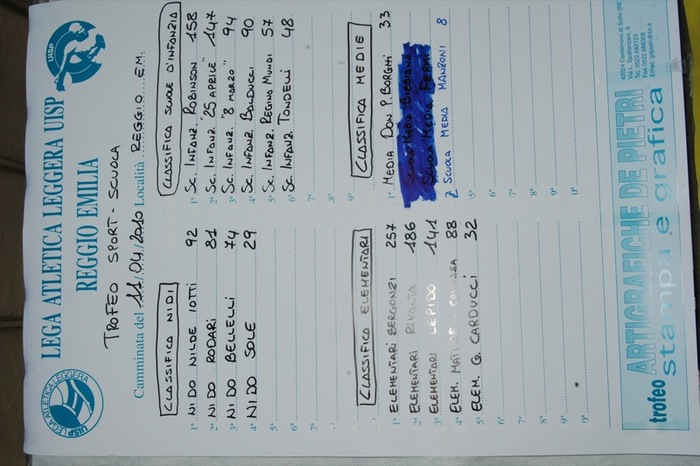 LEGA ATLETICA LEGGERA UISP
REGGIO EMILIA
UISP LEGA ATLETICA LEGGERA
UISP
TROFEO SPORT - SCUOLA
Camminata del 11/04/2010 Località REGGIO E.M.
CLASSIFICA NIDI
1ª NIDO NILDE IOTTI 92
2ª NIDO RODARI 81
3ª NIDO BELLELLI 74
4ª NIDO SOLE 29
5ª
6ª
7ª
CLASSIFICA SCUOLE D'INFANZIA
1ª SC. INFANZ. ROBINSON 158
2ª SC. INFANZ. "25 APRILE" 147
3ª SC. INFANZ. "8 MARZO" 94
4ª SC. INFANZ. BALDUCCI 90
5ª SC. INFANZ. REGINA MUNDI 57
6ª SC. INFANZ. TONDELLI 48
7ª
8ª
9ª
CLASSIFICA ELEMENTARI
1ª ELEMENTARI BERGONZI 257
2ª ELEMENTARI RIVALTA 186
3ª ELEMENTARI LEPIDO 141
4ª ELEM. 88
5ª ELEM. G. CARDUCCI 32
6ª
7ª
8ª
9ª
CLASSIFICA MEDIE
1ª MEDIA DON P. BORGHI 33
SCUOLA MEDIA BIBBIANO
SCUOLA MEDIA FERMI
2 SCUOLA MEDIA MANZONI 8
5ª
6ª
7ª
8ª
9ª
trofeo ARTIGRAFICHE DE PIETRI
stampa e grafica
42024 Castelnovo di Sotto (RE)
Via L. Spallanzani, 9
Tel. 0522.682123